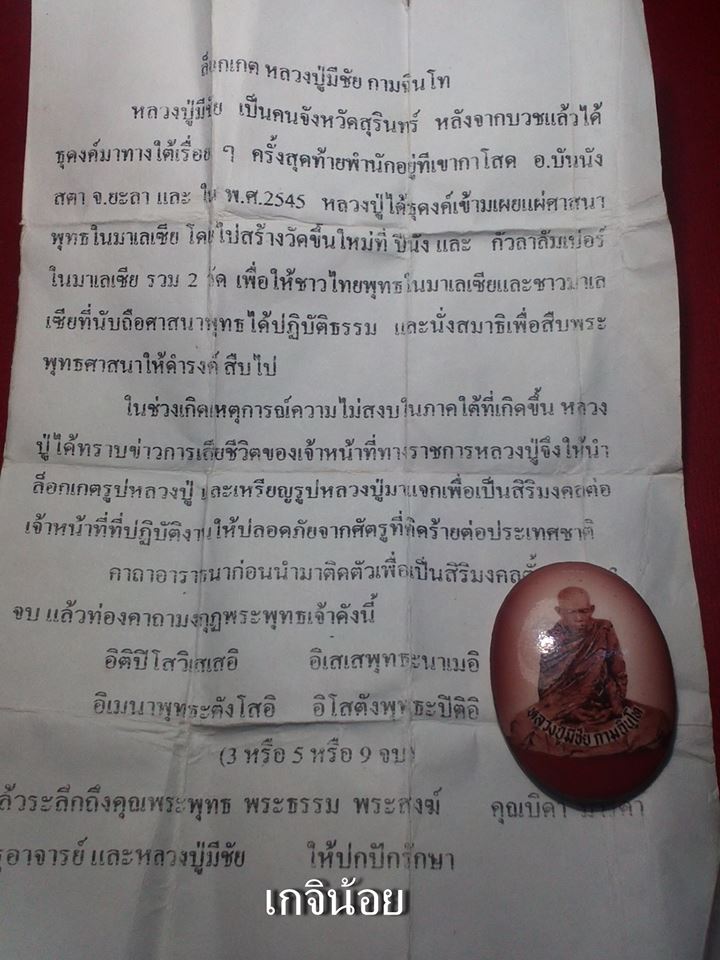 ล็อกเกต หลวงปู่มีชัย กามฉินโท
หลวงปู่มีชัย เป็นคนจังหวัดสุรินทร์ หลังจากบวชแล้วได้
ธุดงค์มาทางใต้เรื่อย ๆ ครั้งสุดท้ายพำนักอยู่ที่เขากาโสด อ.บันนัง
สตา จ.ยะลา และ ใน พ.ศ.2545 หลวงปู่ได้ธุดงค์เข้ามเผยแผ่ศาสนา
พุทธในมาเลเซีย โดยไปสร้างวัดขึ้นใหม่ที่ ปีนัง และ กัวลาลัมเปอร์
ในมาเลเซีย รวม 2 วัด เพื่อให้ชาวไทยพุทธในมาเลเซียและชาวมาเล
เซียที่นับถือศาสนาพุทธได้ปฏิบัติธรรม และนั่งสมาธิเพื่อสืบพระ
พุทธศาสนาให้ดำรงค์ สืบไป
ในช่วงเกิดเหตุการณ์ความไม่สงบในภาคใต้ที่เกิดขึ้น หลวง
ปู่ได้ทราบข่าวการเสียชีวิตของเจ้าหน้าที่ทางราชการหลวงปู่จึงให้นำ
ล็อกเกตรูปหลวงปู่ และเหรียญรูปหลวงปู่มาแจกเพื่อเป็นสิริมงคลต่อ
เจ้าหน้าที่ที่ปฏิบัติงานให้ปลอดภัยจากศัตรูที่คิดร้ายต่อประเทศชาติ
คาถาอาราธนาก่อนนำมาติดตัวเพื่อเป็นสิริมงคล
จบ แล้วท่องคาถามงกุฎพระพุทธเจ้าดังนี้
อิติปิโสวิเสเสอิ อิเสเสพุทธะนาเมอิ
อิเมนาพุทธะตังโสอิ อิโสตังพุทธะปิติอิ
(3 หรือ 5 หรือ 9 จบ)
ล้วระลึกถึงคุณพระพุทธ พระธรรม พระสงฆ์ คุณบิดา มารดา
อาจารย์ และหลวงปู่มีชัย ให้ปกปักรักษา
หลวงปู่มีชัย กามฉินโท
เกจิน้อย